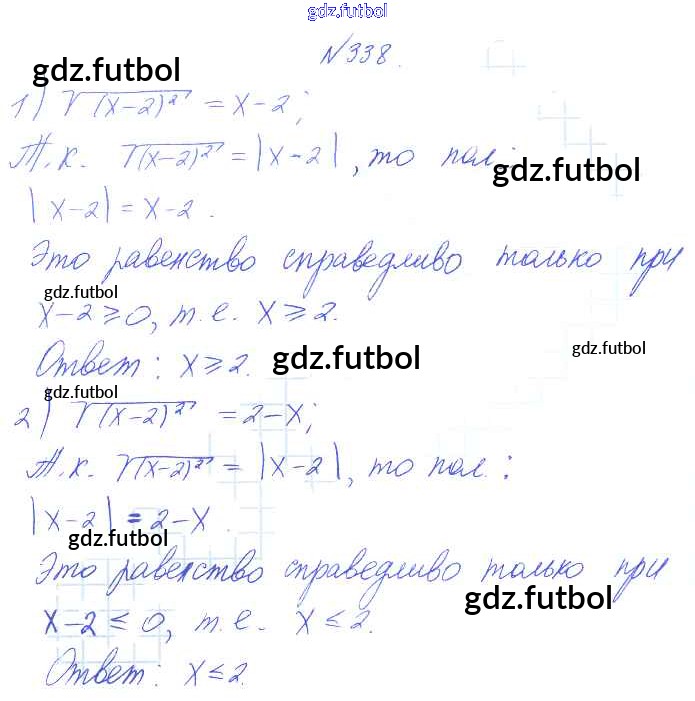 gdz.futbol
№338.
gdz.futbol
1) √(x-2)² = x-2;
Т.к. √(x-2)² = |x-2|, то пол.:
gdz.futbol
|x-2| = x-2.
Это равенство справедливо только при
gdz.futbol
x-2≥0, т.е. x≥2.
Ответ: x≥2.
gdz.futbol
gdz.futbol
gdz.futbol
2) √(x-2)² = 2-x;
Т.к. √(x-2)² = |x-2|, то пол.:
|x-2| = 2-x.
gdz.futbol
Это равенство справедливо только при
gdz.futbol
x-2≤0, т.е. x≤2.
Ответ: x≤2.